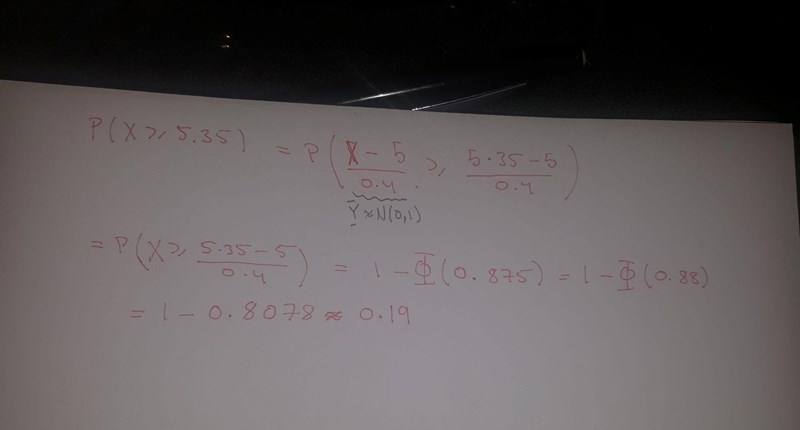 P(X ≥ 5.35) = P( (X - 5)/0.4 ≥ (5.35 - 5)/0.4 )
Y ≈ N(0,1)
= P( X ≥ (5.35 - 5)/0.4 ) = 1 - Φ(0.875) = 1 - Φ(0.88)
= 1 - 0.8078 ≈ 0.19